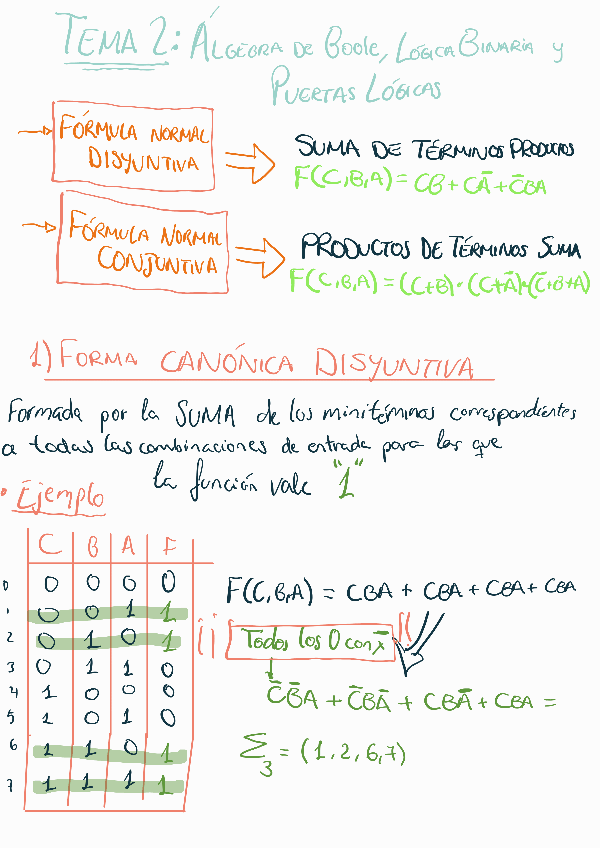 TEMA 2: ÁLGEBRA DE BOOLE, LÓGICA BINARIA y
PUERTAS LÓGICAS
FÓRMULA NORMAL
DISYUNTIVA
SUMA DE TÉRMINOS PRODUCTOS
F(C,B,A) = CB + CĀ + C̄BA
FÓRMULA NORMAL
CONJUNTIVA
PRODUCTOS DE TÉRMINOS SUMA
F(C,B,A) = (C+B)·(C+Ā)·(C̄+B+A)
1) FORMA CANÓNICA DISYUNTIVA
Formada por la SUMA de los minitérminos correspondientes
a todas las combinaciones de entrada para las que
la función vale "1"
• Ejemplo
C B A F
0 0 0 0 0
1 0 0 1 1
2 0 1 0 1
3 0 1 1 0
4 1 0 0 0
5 1 0 1 0
6 1 1 0 1
7 1 1 1 1
F(C,B,A) = CBA + CBA + CBA + CBA
¡¡ Todos los 0 con x̄ !!
C̄B̄A + C̄BĀ + CBĀ + CBA =
Σ3 = (1,2,6,7)